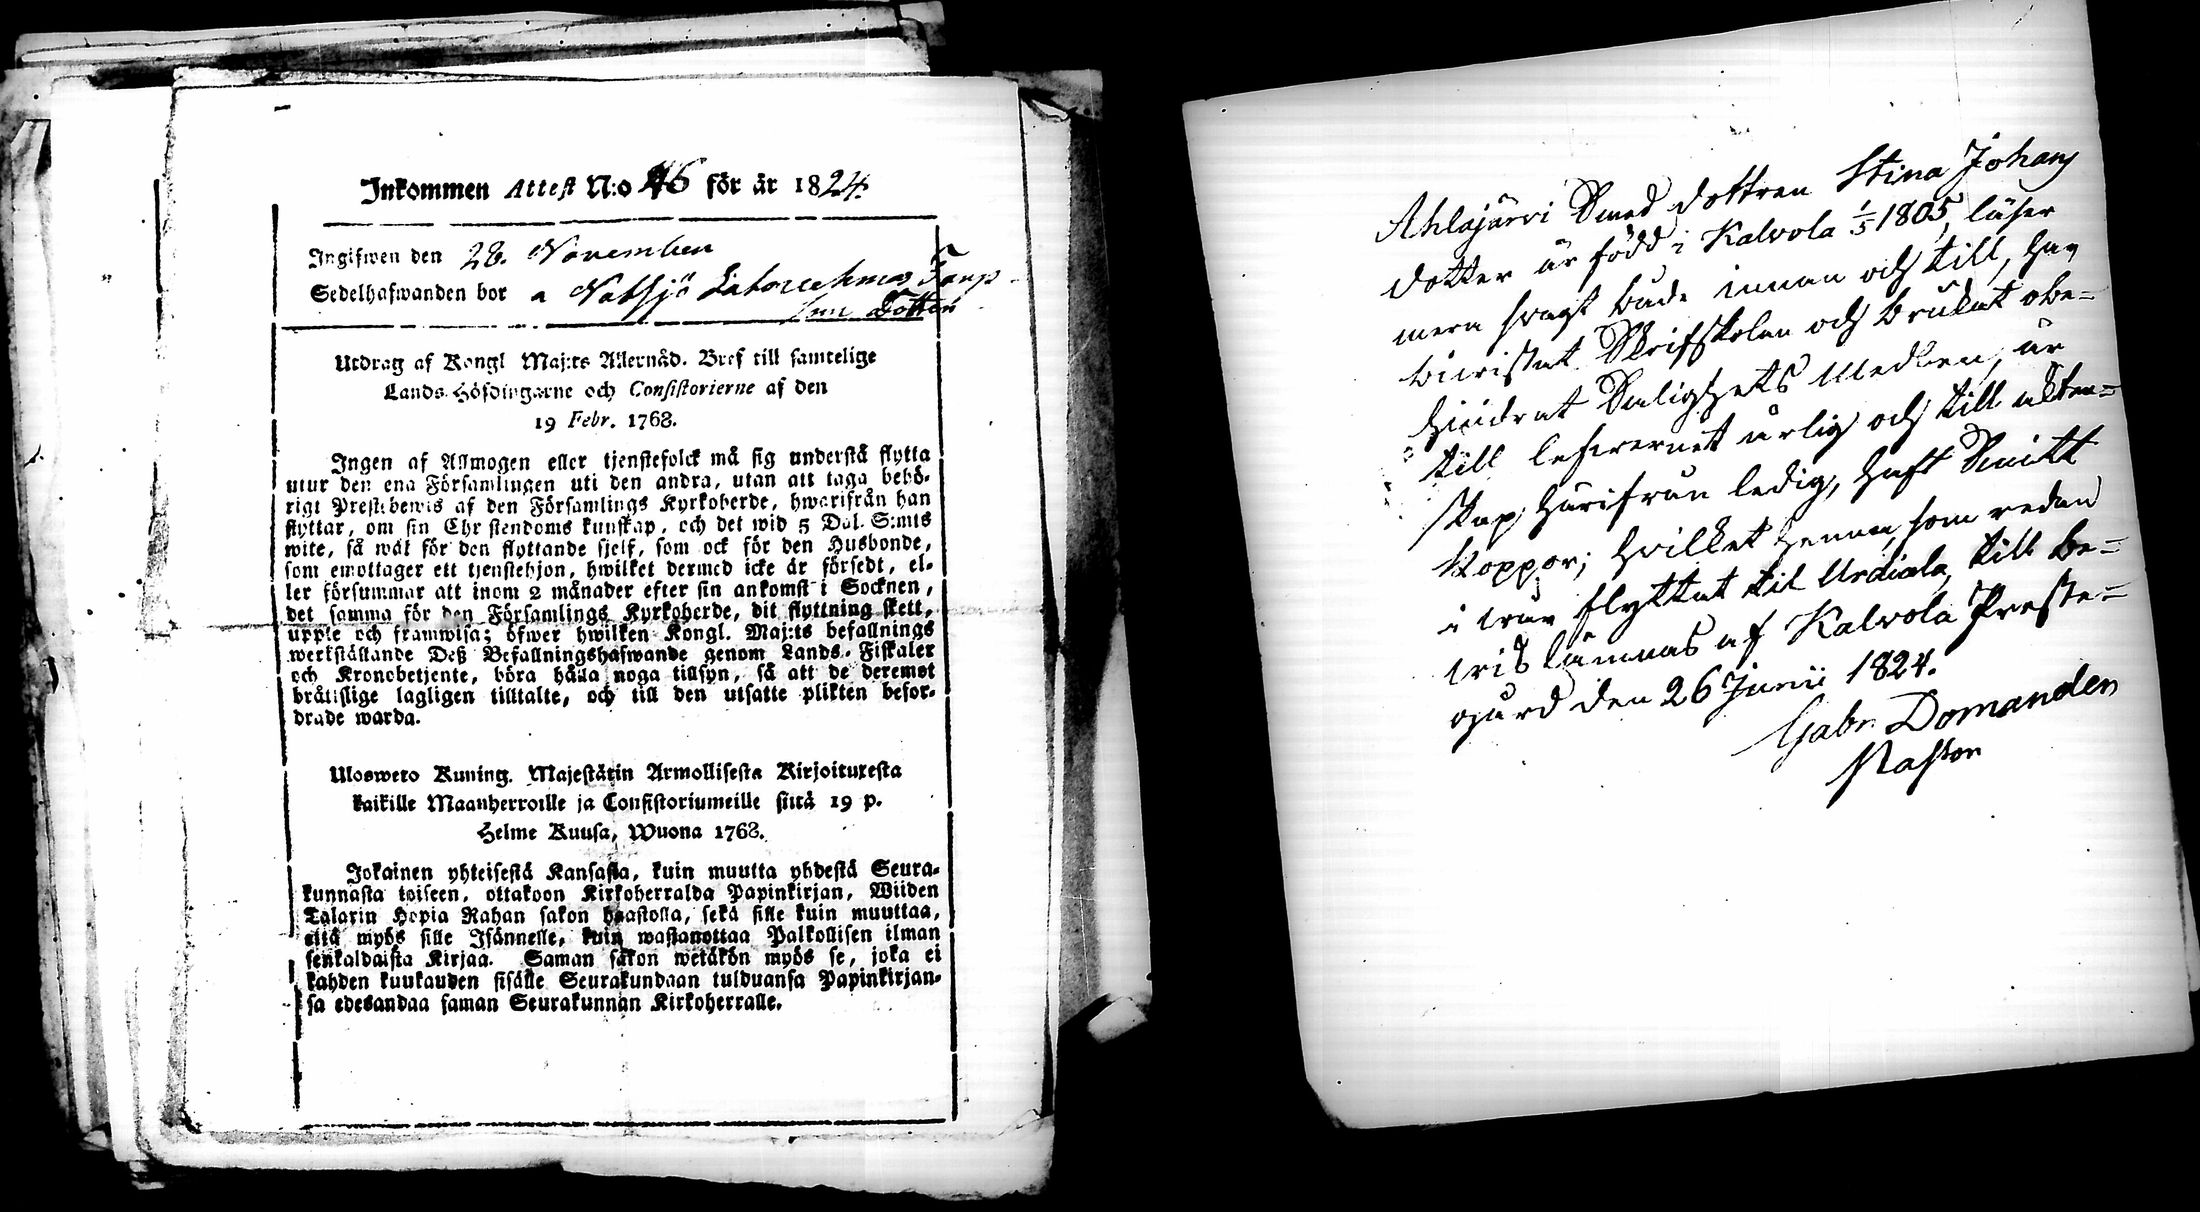 Inkommen Attest N:o 46 för år 1824.
Ingifwen den 28. November
Sedelhafwanden bor a Nutsjö
Dotter
Utdrag af Kongl Maj:ts Allernåd. Bref till samtelige
Lands-Höfdingarne och Consistorierne af den
19 Febr. 1768.
Ingen af Allmogen eller tjenstefolck må sig understå flytta
utur den ena Församlingen uti den andra, utan att taga behö-
rigt Prestebewis af den Församlings Kyrkoherde, hwarifrån han
flyttar, om sin Christendoms kunskap, och det wid 5 Dal. S:mts
wite, så wäl för den flyttande sjelf, som ock för den Husbonde,
som emottager ett tjenstehjon, hwilket dermed icke är försedt, el-
ler försummar att inom 2 månader efter sin ankomst i Socknen,
det samma för den Församlings Kyrkoherde, dit flyttning skett,
uppte och framwisa; öfwer hwilken Kongl. Maj:ts befallnings
werkställande Deß Befallningshafwande genom Lands-Fiskaler
och Kronobetjente, böra hålla noga tillsyn, så att de deremot
bråtislige lagligen tilltalte, och till den utsatte plikten befor-
drade warda.
Uloswero Kuning. Majestätin Armollisesta Kirjoituxesta
kaikille Maanherroille ja Consistoriumeille siitä 19 p.
Helme Kuusa, Wuona 1768.
Jokainen yhteisestä Kansasta, kuin muutta yhdestä Seura-
kunnasta toiseen, ottakoon Kirkoherralda Papinkirjan, Wiiden
Talarin Hopia Rahan sakon haastolla, sekä sille kuin muuttaa,
että myös sille Isännelle, kuin wastanottaa Palkollisen ilman
senkaldaista Kirjaa. Saman sakon wetäkön myös se, joka ei
kahden kuukauden sisälle Seurakundaan tulduansa Papinkirjan-
sa edesandaa saman Seurakunnan Kirkoherralle.
Ahlajärvi Smed dottren Stina Johans
dotter är född i Kalvola 1/5 1805, läser
mera svagt både innan och till, har
bevistat Skriftskolan och brukat obe-
hindrat Salighets medlen, är
till lefvernet ärlig och till äkten-
skap härifrån ledig, haft Smitt
koppor; hvilket henne, som redan
i vår flyttat till Urdiala, till be-
vis lämnas af Kalvola Preste-
gård den 26 Junii 1824.
Gabr. Domander
Pastor